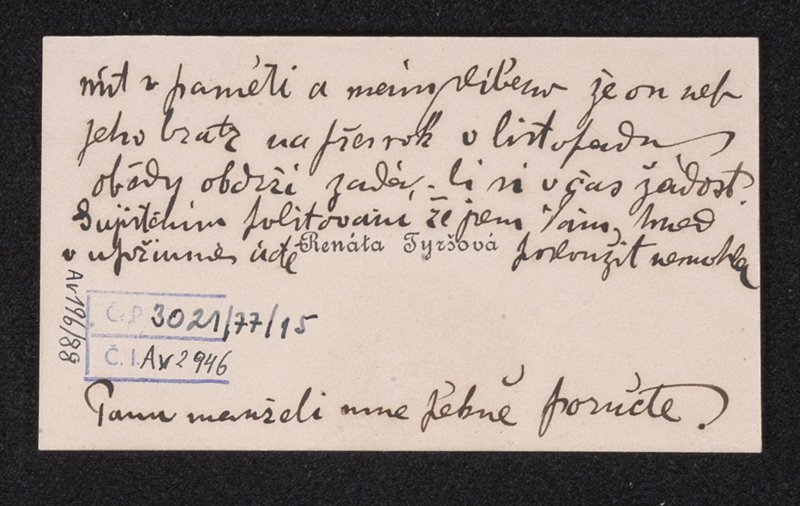 mít v paměti a mám slíbeno že on neb
jeho bratr na přes rok v listopadu
obědy obdrží zadá-li si v čas žádost.
S ujištěním politování že jsem Vám hned
v upřímné úctě Renáta Tyršová posloužit nemohla
Č.P. 3021/77/15
Č. I. Av 2946
Av 196/88
Panu manželi mne pěkně poručte.